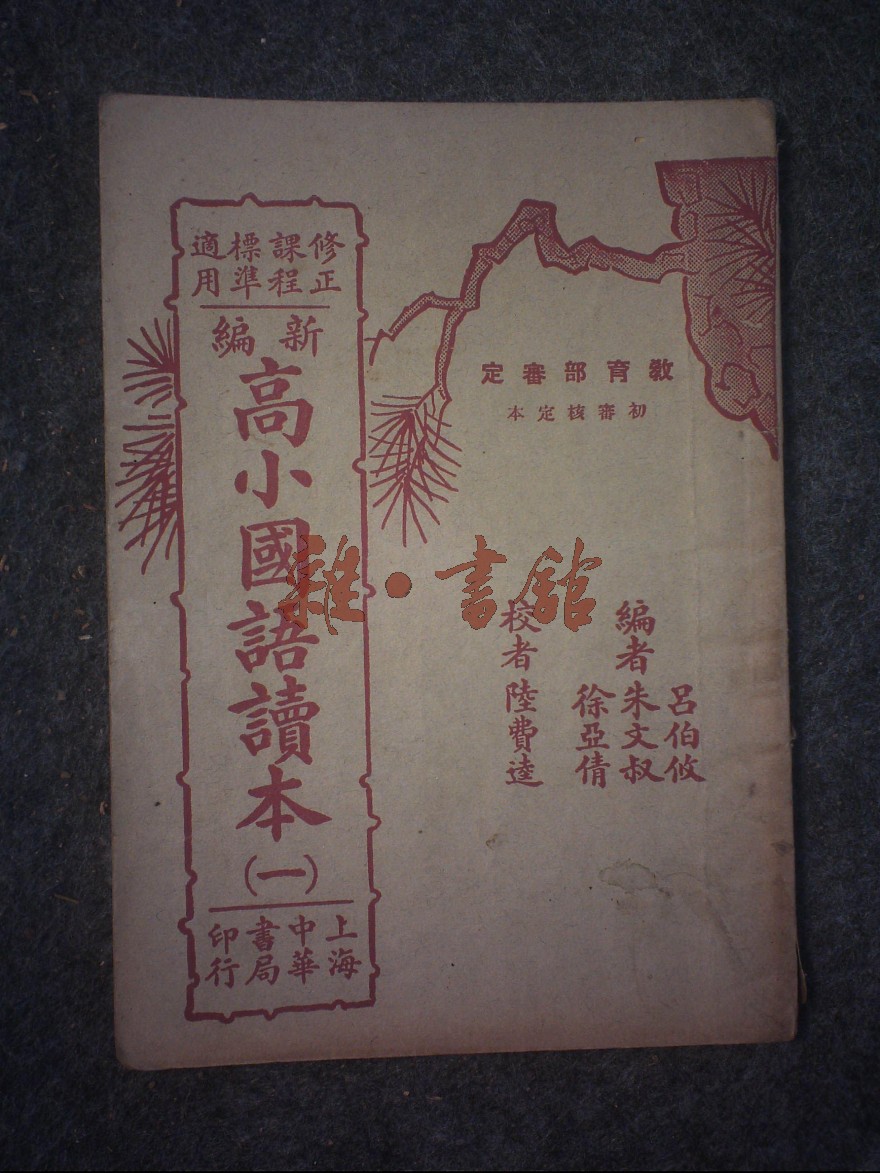 教育部審定
初審核定本
編者
呂伯攸
朱文叔
徐亞倩
校者 陸費逵
修正課程標準適用
新編
高小國語讀本
(一)
上海中華書局印行
雜·書館